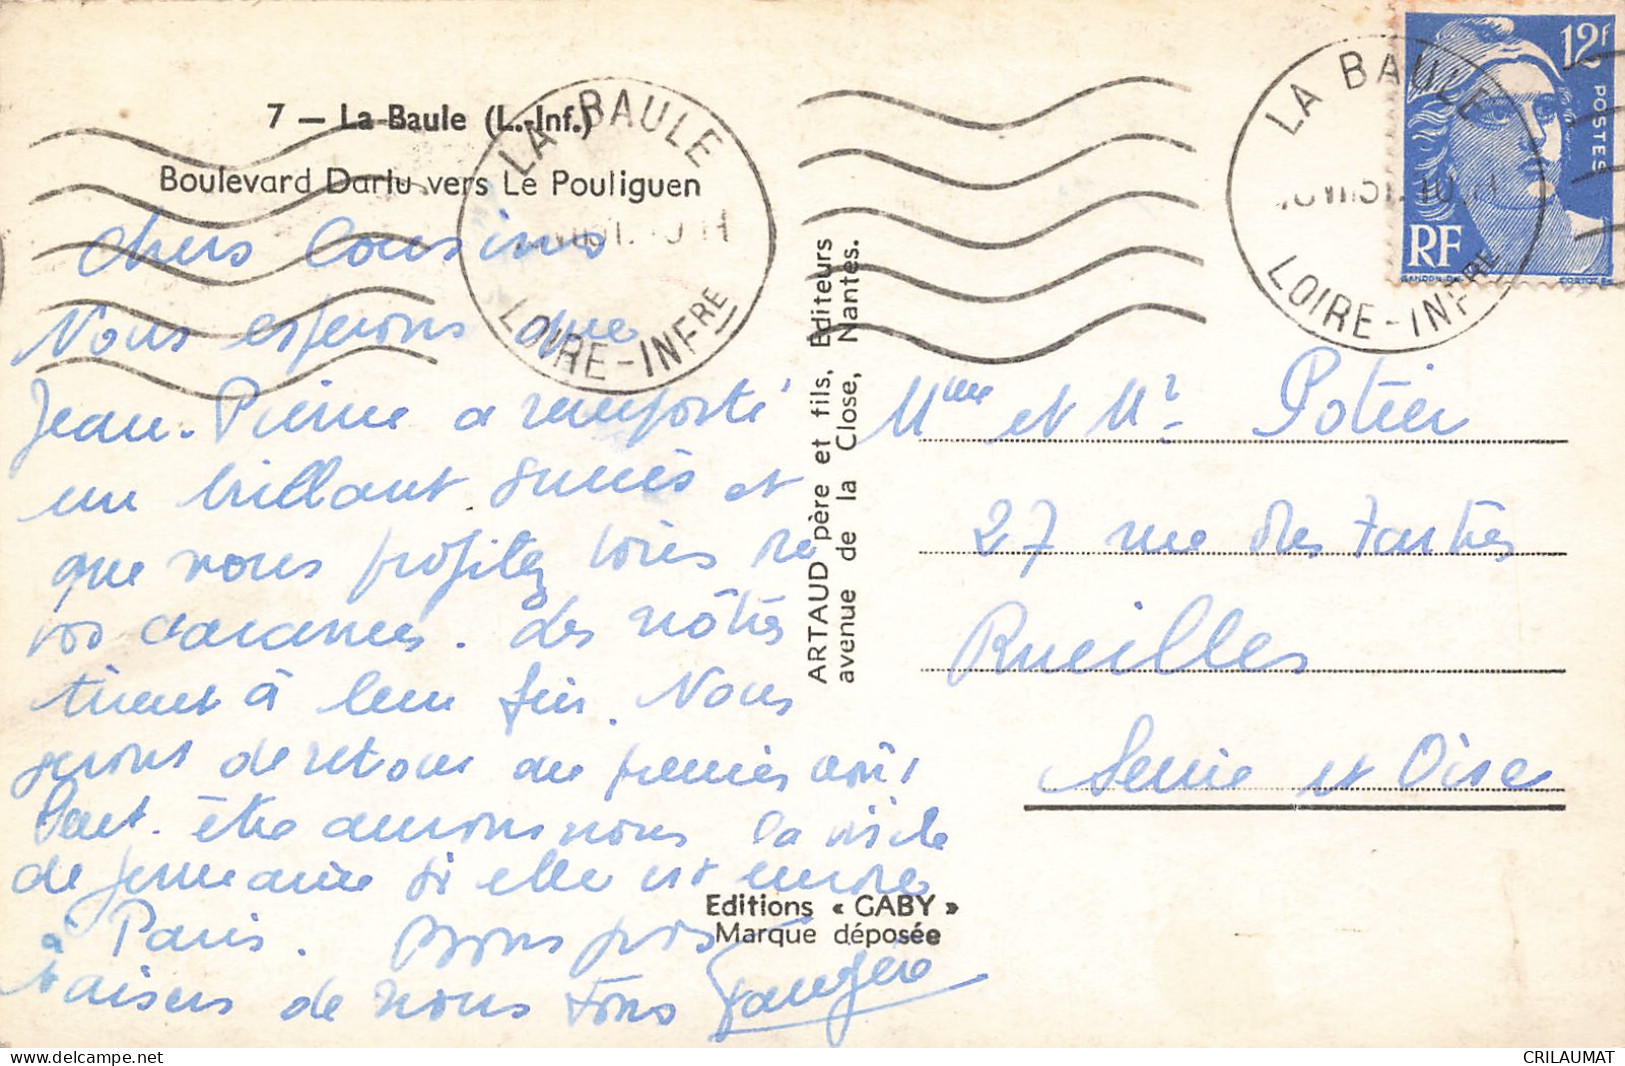 7 — La Baule (L.-Inf.)
Boulevard Darlu vers Le Pouliguen
LA BAULE
LOIRE-INFRE
LA BAULE
LOIRE-INFRE
12F
POSTES
RF
GANDON
chers Cousins
Nous esperons que
Jean-Pierre a remporté
un brillant succès et
que vous profitez bien de
vos vacances. Les nôtres
tirent à leur fin. Nous
serons de retour au premier août
Peut-être aurons nous la visite
de Germaine si elle est encore
à Paris. Bons gros
baisers de nous tous
ARTAUD père et fils, Editeurs
avenue de la Close, Nantes.
Mme et Mr Potier
27 rue des
Rueilles
Seine et Oise
Editions « GABY »
Marque déposée
https://www.delcampe.net
CRILAUMAT